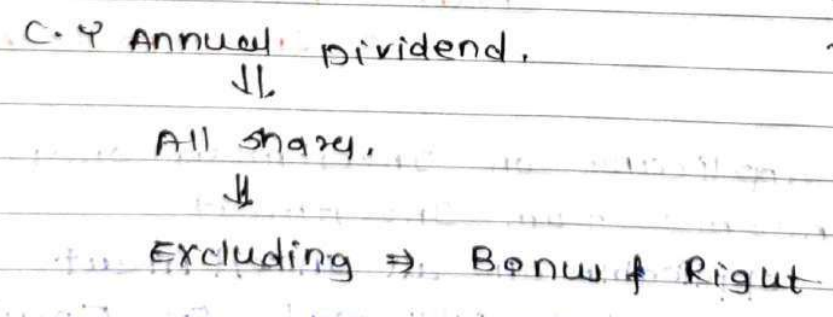 C.Y Annual Dividend.
⇓
All shares.
⇓
Excluding ⇒ Bonus & Right